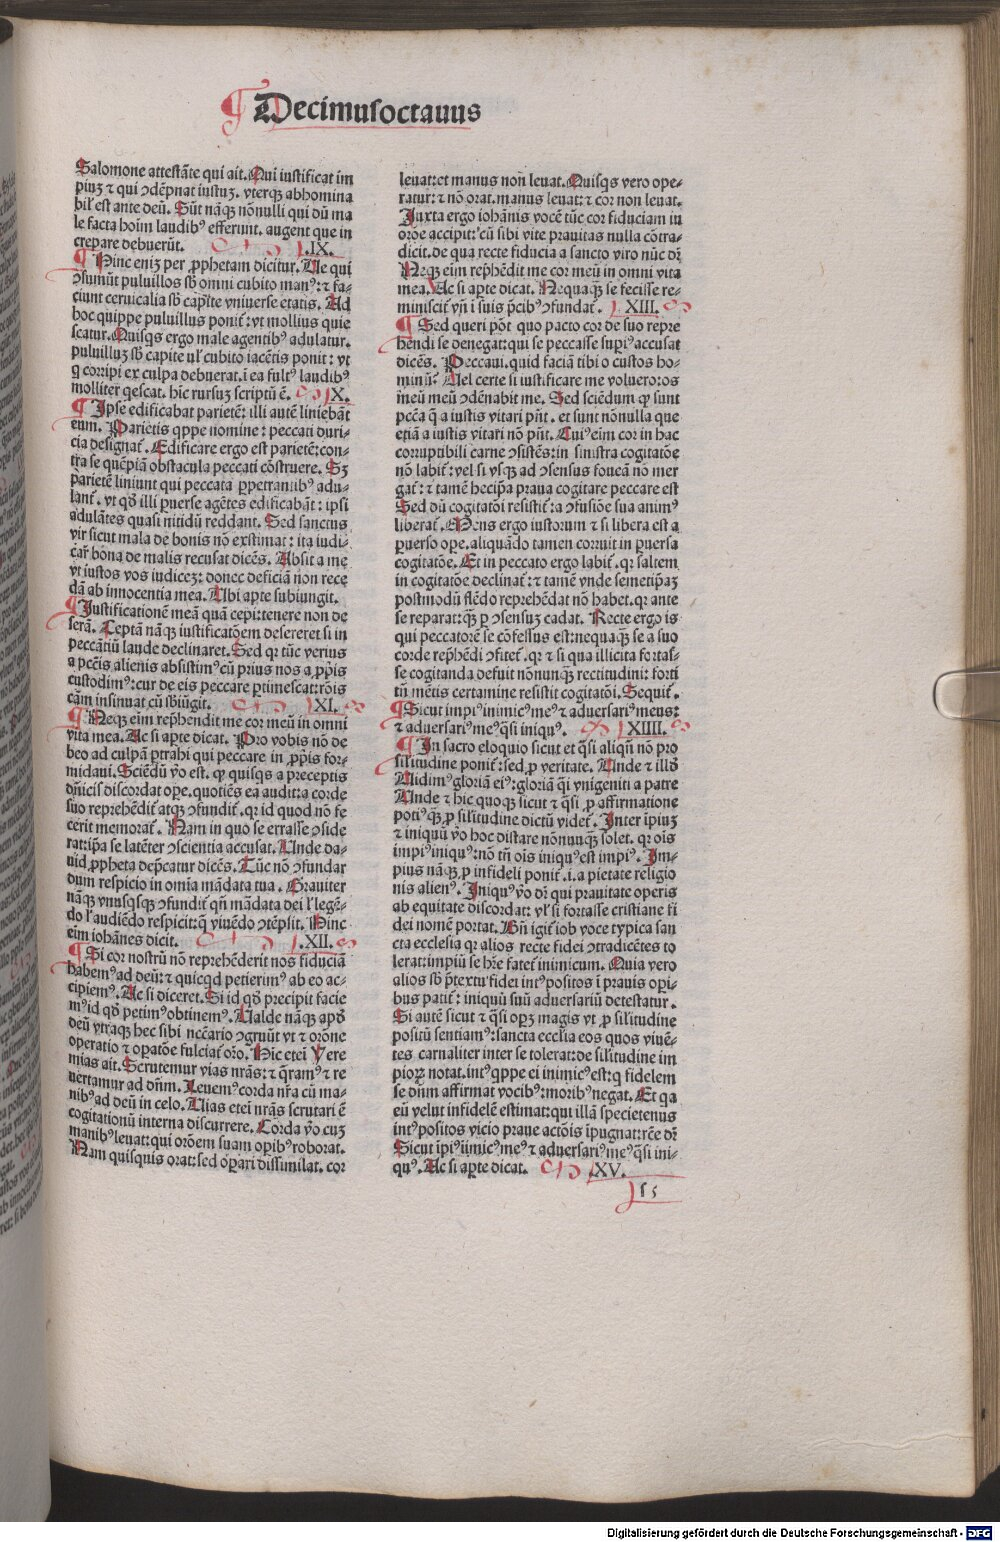 Decimusoctauus
Salomone attestāte qui ait. Qui iustificat im
piuꝫ ⁊ qui ↄdēpnat iustuꝫ. vterqꝫ abhomina
bil' est ante deū. Sūt nāqꝫ nōnulli qui dū ma
le facta hoīm laudibꝰ efferunt. augent que in
crepare debuerūt. .IX.
Hinc eniꝫ per ꝓphetam dicitur. Ue qui
ↄsumūt puluillos sb̄ omni cubito manꝰ: ⁊ fa-
ciunt ceruicalia sb̄ capite vniuerse etatis. Ad
hoc quippe puluillus ponit᷑: vt mollius quie
scatur. Quisqs ergo male agentibꝰ adulatur.
puluilluꝫ sb̄ capite ul' cubito iacētis ponit: vt
q corripi ex culpa debuerat. ī ea fultꝰ laudibꝰ
molliter qescat. hic rursuꝫ scriptū ē. .X.
Ipse edificabat parietē: illi autē liniebāt
eum. Parietis qppe nomine: peccati duri-
cia designat᷑. Edificare ergo est parietē: con-
tra se quēpiā obstacula peccati cōstruere. Sꝫ
parietē liniunt qui peccata ꝑpetrantibꝰ adu-
lant᷑. vt qd̄ illi ꝑuerse agētes edificabāt: ipsi
adulātes quasi nitidū reddant. Sed sanctus
vir sicut mala de bonis nō existimat: ita iudi-
car̄ bona de malis recusat dicēs. Absit a me
vt iustos vos iudiceꝫ: donec deficiā non rece
dā ab innocentia mea. Ubi apte subiungit.
Iustificationē meā quā cepi: tenere non de
serā. Ceptā nāqꝫ iustificatōem desereret si in
peccātiū laude declinaret. Sed qr tūc verius
a pccīs alienis absistimꝰ cū prius nos a ꝓpīs
custodimꝰ: cur de eis peccare ꝑtimescat: rōis
cām insinuat cū sb̄iūgit. .XI.
Neqꝫ eīm rep̄hendit me cor meū in omni
vita mea. Ac si apte dicat. Pro vobis nō de
beo ad culpā ꝑtrahi qui peccare in ꝓpīs for-
midaui. Sciēdū ṽo est. qꝫ quisqs a preceptis
dn̄icis discordat ope. quotiēs ea audit: a corde
suo reprehēdit᷑ atqꝫ ↄfundit᷑. qr id quod nō fe
cerit memorat᷑. Nam in quo se errasse ↄside
rat: ip̄a se latēter ↄscientia accusat. Unde da-
uid ꝓpheta dep̄catur dicēs. Tūc nō ↄfundar
dum respicio in omīa mādata tua. Grauiter
nāqꝫ vnusqsqꝫ ↄfundit᷑ qn̄ mādata dei l'legē-
do l'audiēdo respicit: q̄ viuēdo ↄtēpsit. Hinc
eīm iohānes dicit. .XII.
Si cor nostrū nō reprehēderit nos fiduciā
habemꝰ ad deū: ⁊ quicqd petierimꝰ ab eo ac-
cipiemꝰ. Ac si diceret. Si id qd̄ precipit facie
mꝰ id qd̄ petimꝰ obtinemꝰ. Ualde nāqꝫ apd̄
deū vtraqꝫ hec sibi nccēario ↄgruūt vt ⁊ orōne
operatio ⁊ opatōe fulciat᷑ or̄o. Hinc etem̄ Jere
mias ait. Scrutemur vias nr̄as: ⁊ q̄ramꝰ ⁊ re
uertamur ad dn̄m. Leuemꝰ corda nr̄a cū ma-
nibꝰ ad deū in celo. Uias etem̄ nr̄as scrutari ē
cogitationū interna discurrere. Corda ṽo cuꝫ
manibꝰ leuat: qui orōem suam opibꝰ roborat.
Nam quisquis orat: sed opari dissimulat. cor
leuat: et manus non leuat. Quisqs vero ope-
ratur: ⁊ nō orat. manus leuat: ⁊ cor non leuat.
Juxta ergo iohānis vocē tūc cor fiduciam in
orōe accipit: cū sibi vite prauitas nulla cōtra-
dicit. de qua recte fiducia a sancto viro nūc dr̄
Neqꝫ eīm rep̄hēdit me cor meū in omni vita
mea. Ac si apte dicat. Nequaqꝫ se fecisse re-
miniscit᷑ vn̄ ī suis p̄cibꝰ ↄfundat᷑. .XIII.
Sed queri pōt quo pacto cor de suo repre
hēdi se denegat: qui se peccasse supꝰ accusat
dicēs. Peccaui. quid faciā tibi o custos ho-
minū: Uel certe si iustificare me voluero: os
meū meū ↄdēnabit me. Sed sciēdum qꝫ sunt
pccā q̄ a iustis vitari pn̄t. et sunt nōnulla que
etiā a iustis vitari nō pn̄t. Cuiꝰ eīm cor in hac
corruptibili carne ↄsistēs: in sinistra cogitatōe
nō labit᷑: vel si vsqꝫ ad ↄsensus foueā nō mer
gat᷑: ⁊ tamē hec ip̄a praua cogitare peccare est
Sed dū cogitatōi resistit᷑: a ↄfusiōe sua animꝰ
liberat᷑. Mens ergo iustorum ⁊ si libera est a
ꝑuerso ope. aliquādo tamen corruit in ꝑuersa
cogitatōe. Et in peccato ergo labit᷑. qr saltem
in cogitatōe declinat᷑: ⁊ tamē vnde semetip̄aꝫ
postmodū flēdo reprehēdat nō habet. qr ante
se reparat: qꝫ ꝑ ↄsensuꝫ cadat. Recte ergo is
qui peccatorē se cōfessus est: nequaqꝫ se a suo
corde rep̄hēdi ↄfitet᷑. qr ⁊ si qua illicita fortas-
se cogitanda defuit nōnunqꝫ rectitudini: forti
tn̄ mētis certamine resistit cogitatōi. Sequit᷑.
Sicut impiꝰ inimicꝰ meꝰ ⁊ aduersariꝰ meus:
⁊ aduersariꝰ meꝰ qsi iniquꝰ. .XIIII.
In sacro eloquio sicut et qsi aliqn̄ nō pro
sil'itudine ponit᷑: sed ꝓ veritate. Unde ⁊ illd̄
Uidimꝰ gloriā eiꝰ: gloriā qsi vnigeniti a patre
Unde ⁊ hic quoqꝫ sicut ⁊ qsi ꝓ affirmatione
potiꝰ qꝫ ꝓ sil'itudine dictū videt᷑. Inter ipiuꝫ
⁊ iniquū ṽo hoc distare nōnunqꝫ solet. qr ois
impiꝰ iniquꝰ: nō tn̄ ois iniquꝰ est impiꝰ. Im-
pius nāqꝫ ꝓ infideli ponit᷑. i. a pietate religio
nis alienꝰ. Iniquꝰ ṽo dr̄ qui prauitate operis
ab equitate discordat: vl' si fortasse cristiane fi
dei nomē portat. Bn̄ igit᷑ iob voce typica san
cta ecclesia qr alios recte fidei ↄtradicētes to
lerat: impiū se hr̄e fatet᷑ inimicum. Quia vero
alios sb̄ p̄textu fidei intꝰ positos ī prauis opi-
bus patit᷑: iniquū suū aduersariū detestatur.
Si autē sicut ⁊ qsi opꝫ magis vt ꝓ sil'itudine
positū sentiamꝰ: sancta ecclīa eos quos viuē-
tes carnaliter inter se tolerat: de sil'itudine im
pioꝝ notat. intꝰ qppe ei inimicꝰ est: q fidelem
se dn̄m affirmat vocibꝰ: moribꝰ negat. Et qa
eū velut infidelē estimat: qui illā specietenus
intꝰ positos vicio praue actōis īpugnat: rcē dr̄
Sicut īpiꝰ iīmicꝰ meꝰ ⁊ aduersariꝰ meꝰ qsi ini-
quꝰ. Ac si apte dicat. .XV.
ſ 5
Digitalisierung gefördert durch die Deutsche Forschungsgemeinschaft - DFG